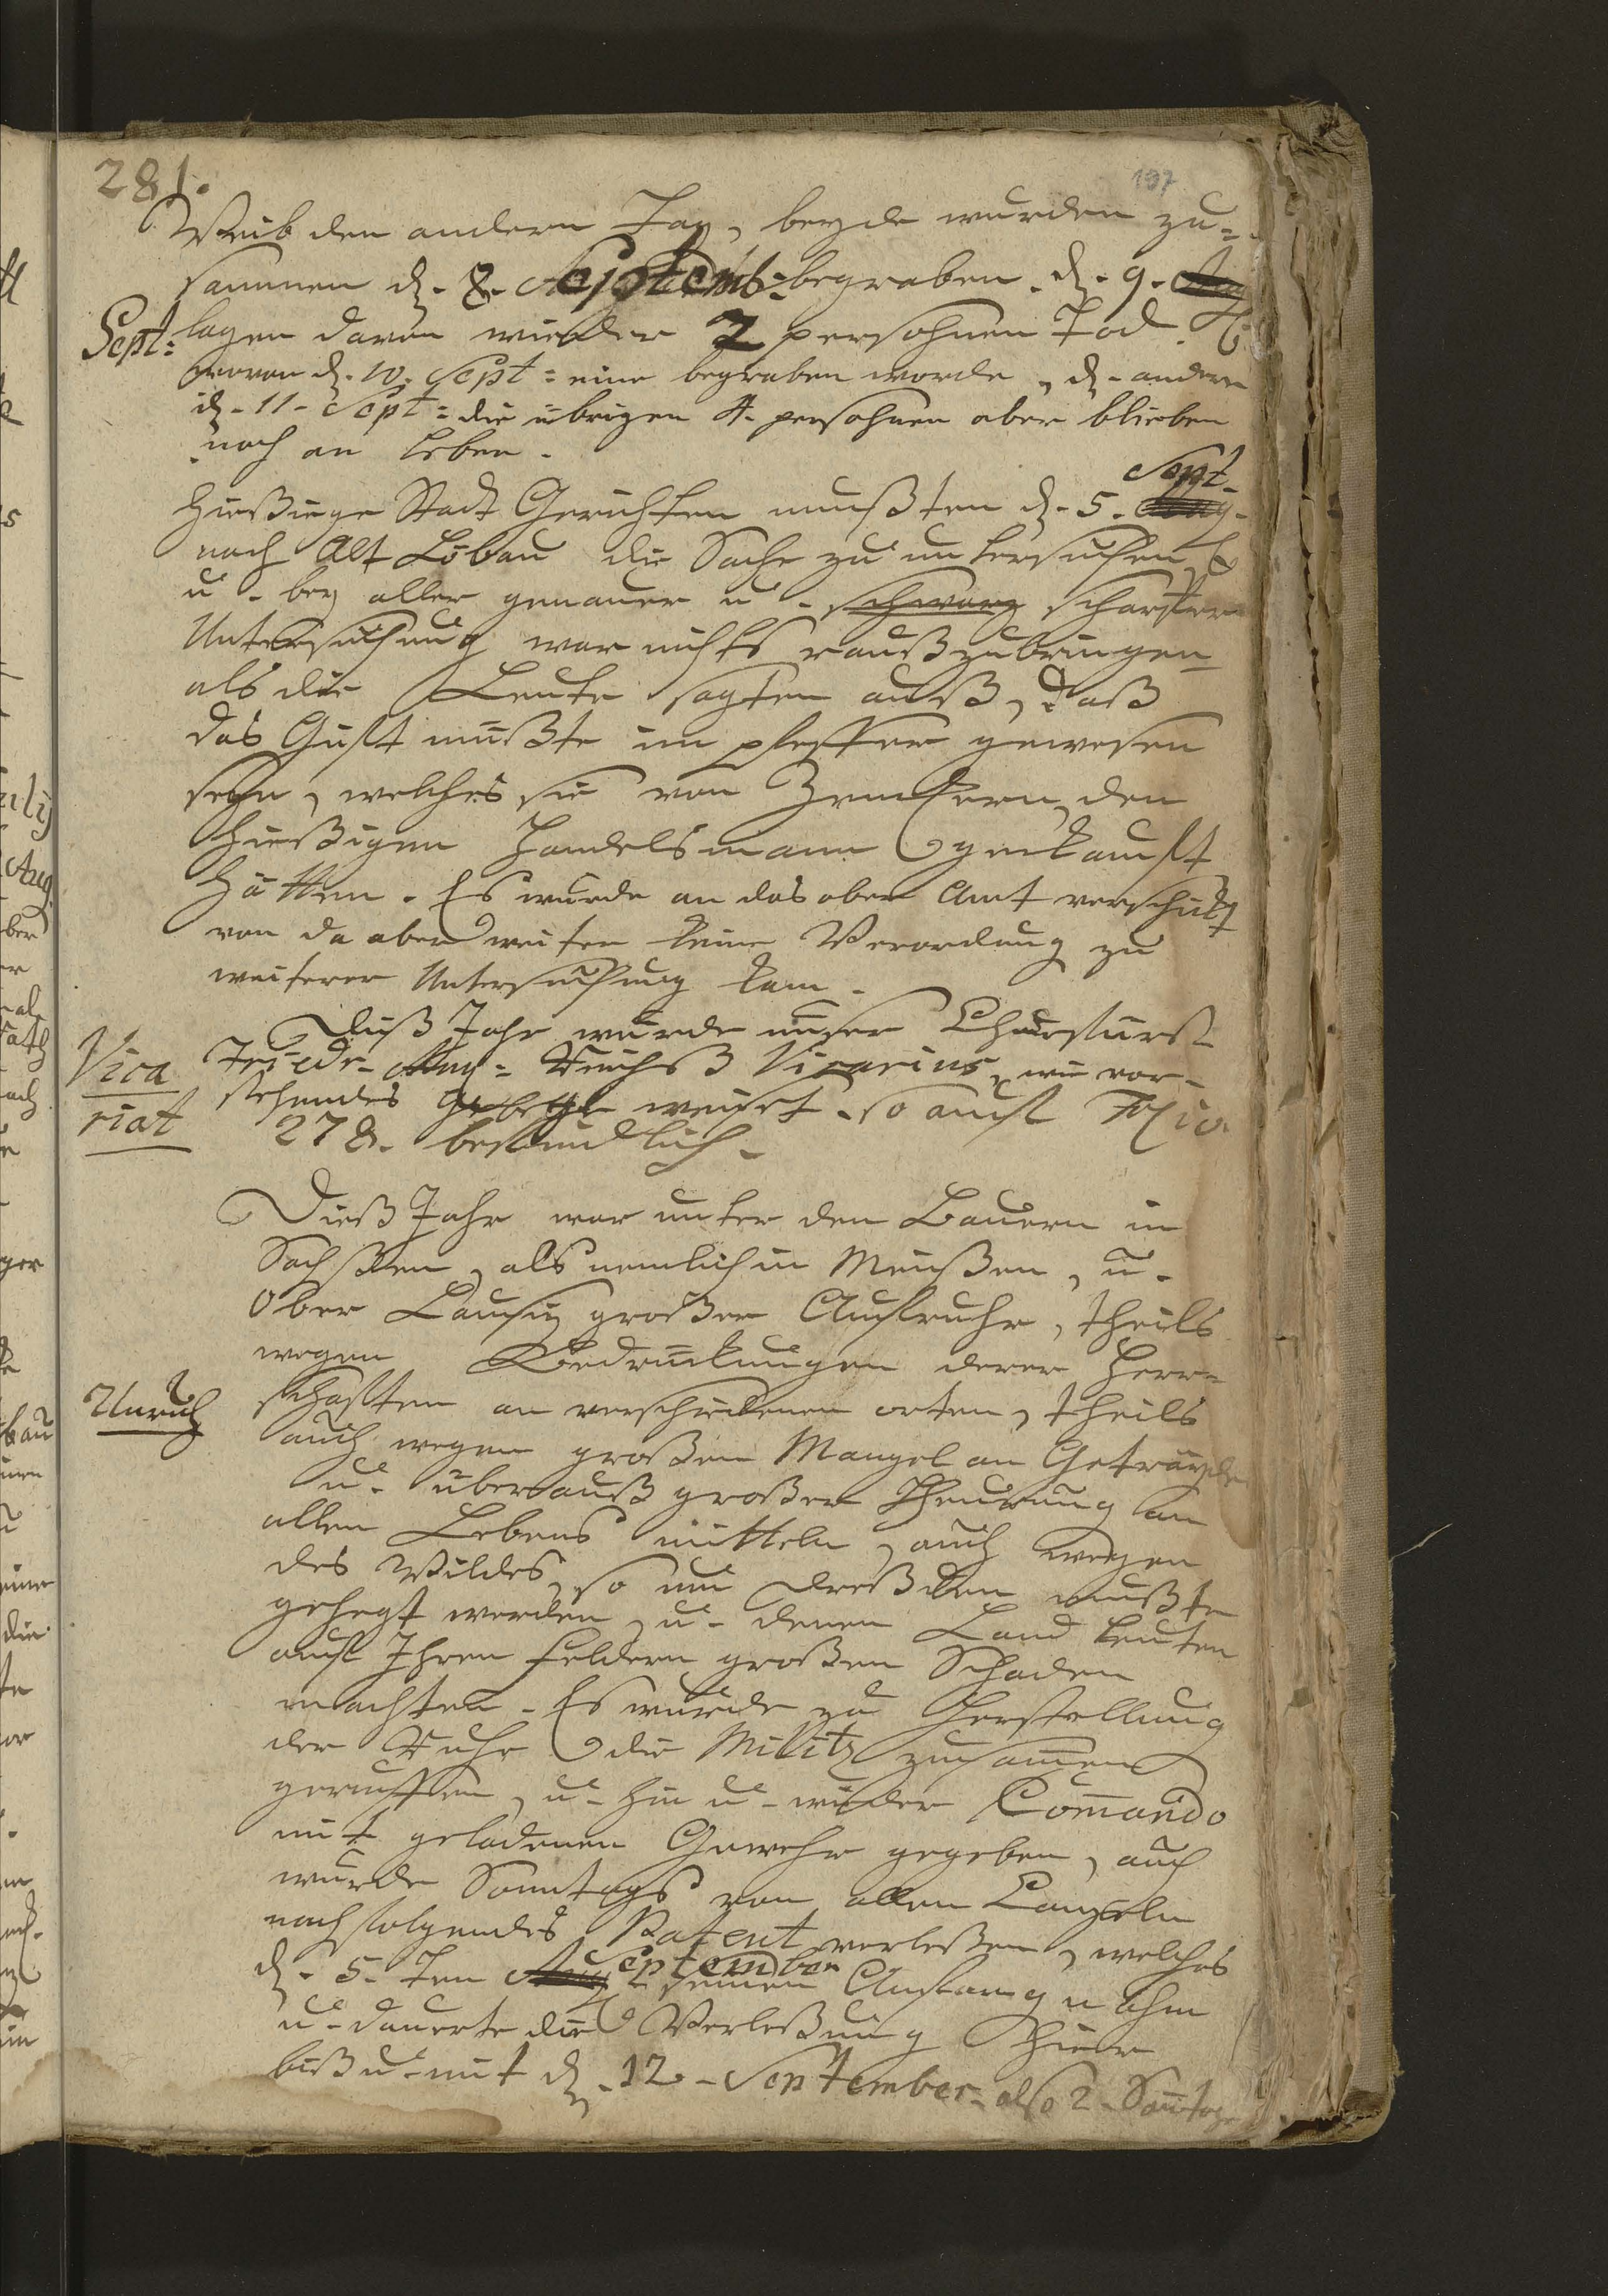 281.
197
Weib den andern Tag, beyde wurden zu=
sammen d. 8. Septemb: begraben. d. 9. Aug
Sept: lagen davon wieder 2 persohnen Tod.
wovon d. 10. Sept: eine begraben worde, d. andere
d. 11. Sept: die übrigen 4. persohnen aber blieben
noch an leben.
Sept.
Hießiege Stadt Gerichten mußten d. 5. Aug.
nach Alt Löbau die Sache zu untersuchen,
u. bey aller genauer u. scharfen
Untersuchung war nichts rauß zubringen
als die Leute sagten auß, daß
das Gift müßte im pfeffer gewesen
seyn, welches sie von den
hießigen Handelsmann gekauft
hätten. Es wurde an das ober Amt verschickt
von da aber weiter keine Verordnung zu
weiterer Untersuchung kam.
Vica
riat
Dieß Jahr wurde unser Churfürst
Friedr. Aug: Reichs Vicarius, wie vor=
stehendes weiset. so auch Folio
278. befindlich.
Dieß Jahr war unter den Bauern in
Sachßen, als nemlich in Meißen, u.
Ober Lausiz großer Aufruhr, theils
wegen Bedrückungen derer Herr=
Unruh
schafften an verschiedenen orten, theils
auch wegen großen Mangel an Geträyde
u. überauß großer Theurung an
allen Lebens mitteln, auch wegen
des Wildes, so um Dreßden mußte
gehegt werden, u. denen Land leuten
auf Ihren Feldern großen Schaden
machten. Es wurde zu Herstellung
der Ruhe die Militz zusamen
geruffen, u. hin u. wieder Com̅ando
mit geladenen Gewehr gegeben, auch
wurde Sonntags von allen Canzeln
nachfolgendes Patent verleßen, welches
September
d. 5. ten Aug seinen Anfang nahm
u. dauerte die Verleßung hier
biß u. mit d. 12. September. also 2. Sontage